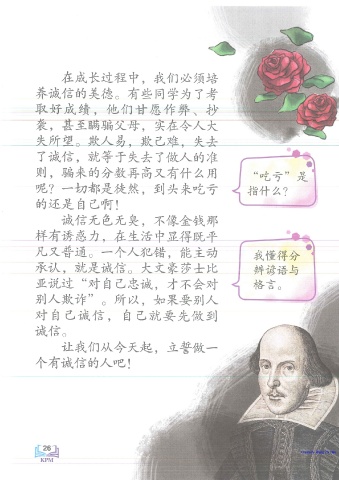 在成长过程中，我们必须培
养诚信的美德。有些同学为了考
取好成绩，他们甘愿作弊、抄
袭，甚至瞒骗父母，实在令人大
失所望。欺人易，欺己难，失去
了诚信，就等于失去了做人的准
则，骗来的分数再高又有什么用
呢？一切都是徒然，到头来吃亏
的还是自己啊！
诚信无色无臭，不像金钱那
样有诱惑力，在生活中显得既平
凡又普通。一个人犯错，能主动
承认，就是诚信。大文豪莎士比
亚说过“对自己忠诚，才不会对
别人欺诈”。所以，如果要别人
对自己诚信，自己就要先做到
诚信。
让我们从今天起，立誓做一
个有诚信的人吧！
“吃亏”是
指什么？
我懂得分
辨谚语与
格言。
26
KPM